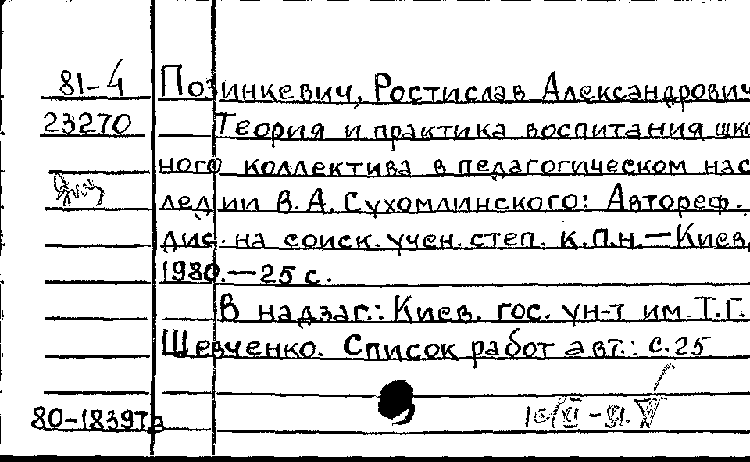 81-4 Позинкевич, Ростислав Александрович
23270 Теория и практика воспитания шко
ного коллектива в педагогическом нас
ледии В.А. Сухомлинского: Автореф.
дис. на соиск. учен. степ. к.п.н. — Киев,
1980. — 25 с.
В надзаг.: Киев. гос. ун-т им Т.Г.
Шевченко. Список работ авт.: с.25
80-18397а